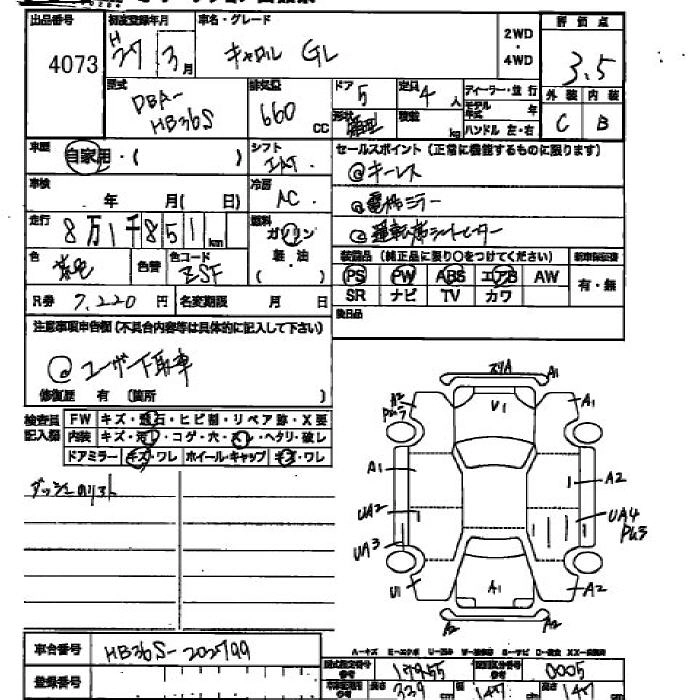 出品番号 初度登録年月 車名・グレード 2WD・4WD 評価点
4073 H27 3月 キャロル GL 3.5
型式 排気量 ドア 定員 ディーラー・並行 外装 内装
DBA-HB36S 660 CC 5 4人 モデル年式 年 C B
形状 箱型 積載 kg ハンドル 左・右
車歴 自家用・( ) シフト IAT. セールスポイント(正常に機能するものに限ります)
@キーレス
車検 年 月( 日) 冷房 AC. @電格ミラー
走行 8万1千851km 燃料 ガソリン・軽・油 @運転席シートヒーター
色 茶色 色替 色コード ZSF 装備品(純正品に限り○をつけてください) 新車保証書
PS PW ABS エアB AW 有・無
SR ナビ TV カワ
R券 7.220円 名変期限 月 日 後日品
注意事項申告欄(不具合内容等は具体的に記入して下さい)
@ユーザー下取車
修復歴 有 (箇所 )
検査員記入部 FW キズ・飛石・ヒビ割・リペア跡・X要
内装 キズ・汚レ・コゲ・穴・スレ・ヘタリ・破レ
ドアミラー キズ・ワレ ホイール・キャップ キズ・ワレ
ダッシュのリフト
スリA A1
A2 Ph3 V1 A1
A1 A2
UA2 UA4 Ph3
UA3
U1 A1 A2
A2 A2
車台番号 HB36S-202799
A-キズ
型式指定番号 17955 類別区分番号 0005
登録番号 長さ 339 幅 147 高さ 147